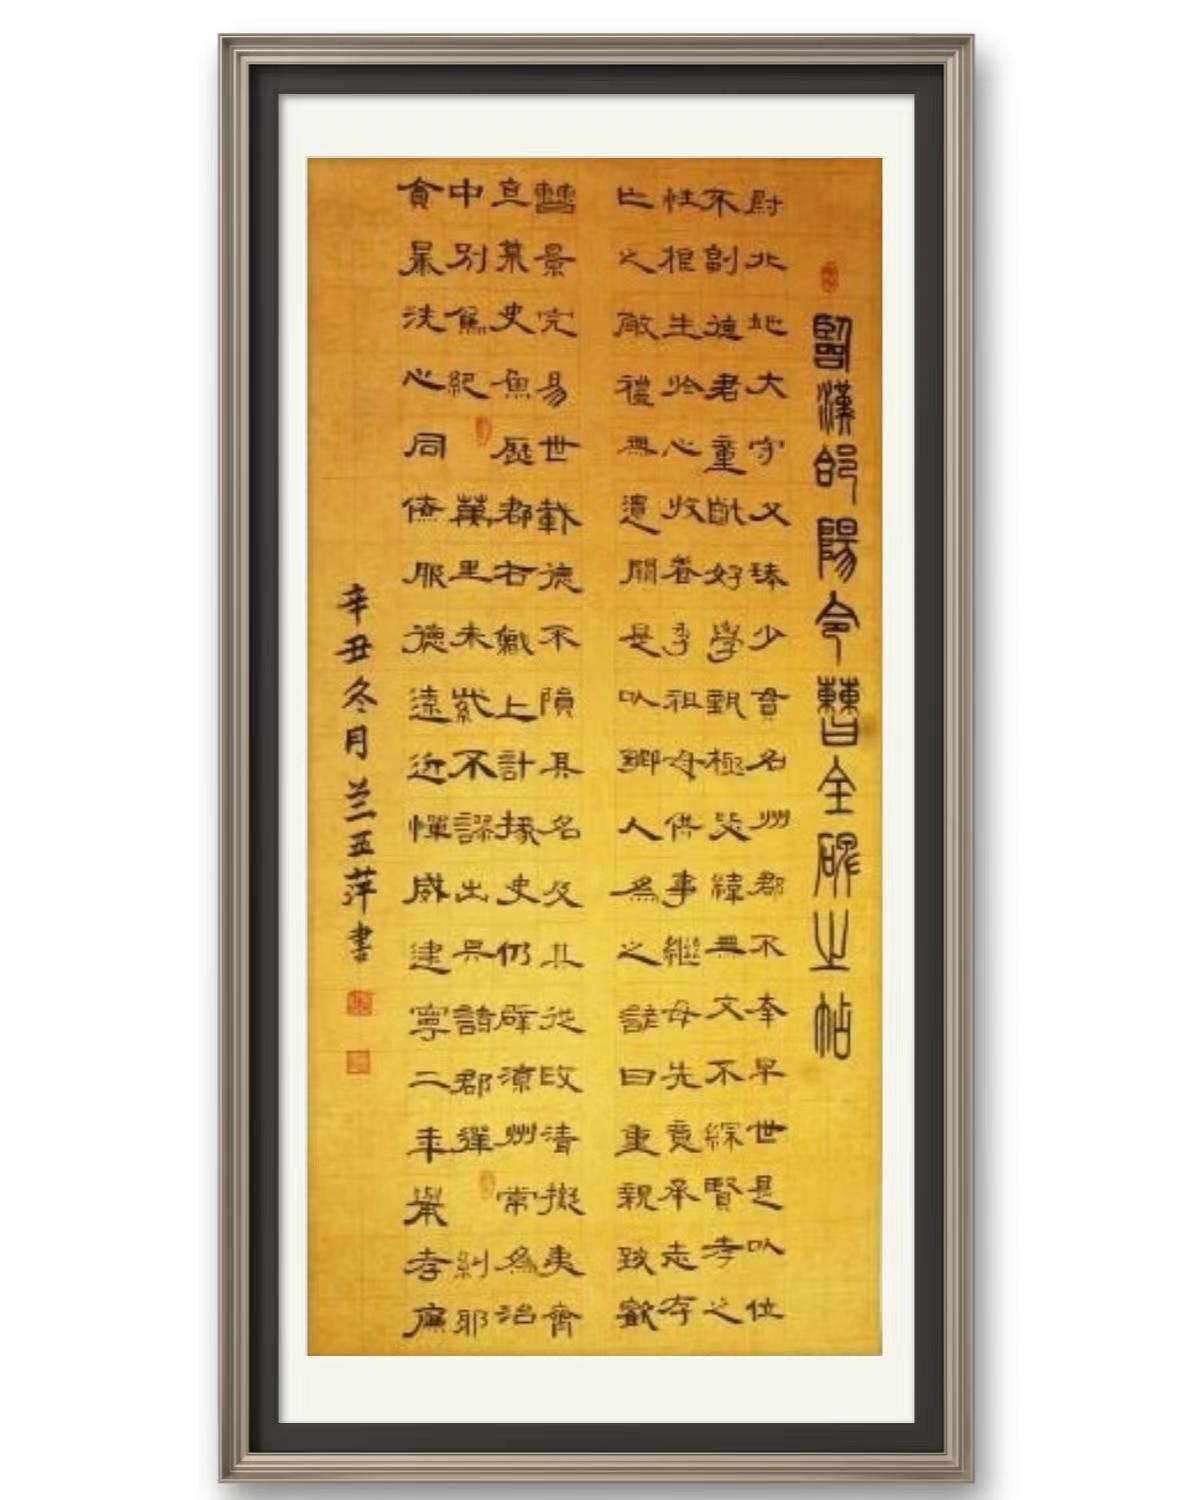 臨漢郃陽令曹全碑之帖
尉北地大守父琫少貫名州郡不幸早世是以位
不副德君童齔好學甄極毖緯無文不綜賢孝之
性根生於心收養季祖母供事繼母先意承志存
亡之敬禮無遺闕是以鄉人為之諺曰重親致歡
曹景完易世載德不隕其名及其從政清擬夷齊
直慕史魚歷郡右職上計掾史仍辟涼州常為治
中別駕紀萬里朱紫不謬出典諸郡彈糾邪
貪暴洗心同僚服德遠近憚威建寧二年舉孝廉
辛丑冬月兰亚萍書